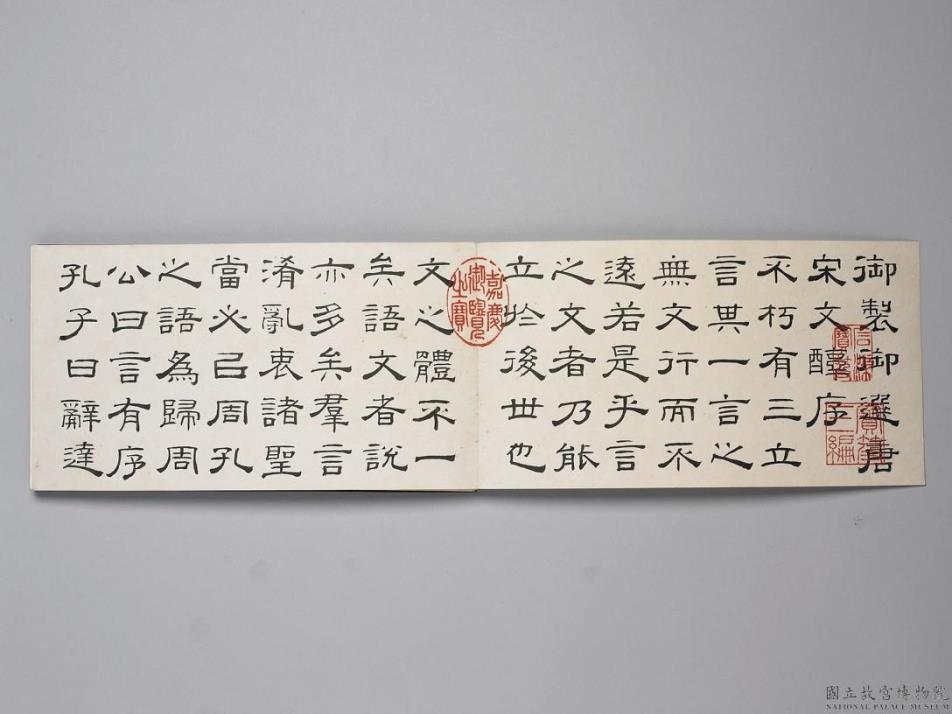 御製御選唐
宋文醇序
不朽有三立
言其一言之
無文行而不
遠若是乎言
之文者乃能
立於後世也
文之體不一
矣語文者說
亦多矣羣言
淆亂衷諸聖
當必㠯周孔
之語為歸周
公曰言有序
孔子曰辭達
石渠寶笈
寶笈三編
嘉慶御覽之寶
國立故宮博物院
NATIONAL PALACE MUSEUM